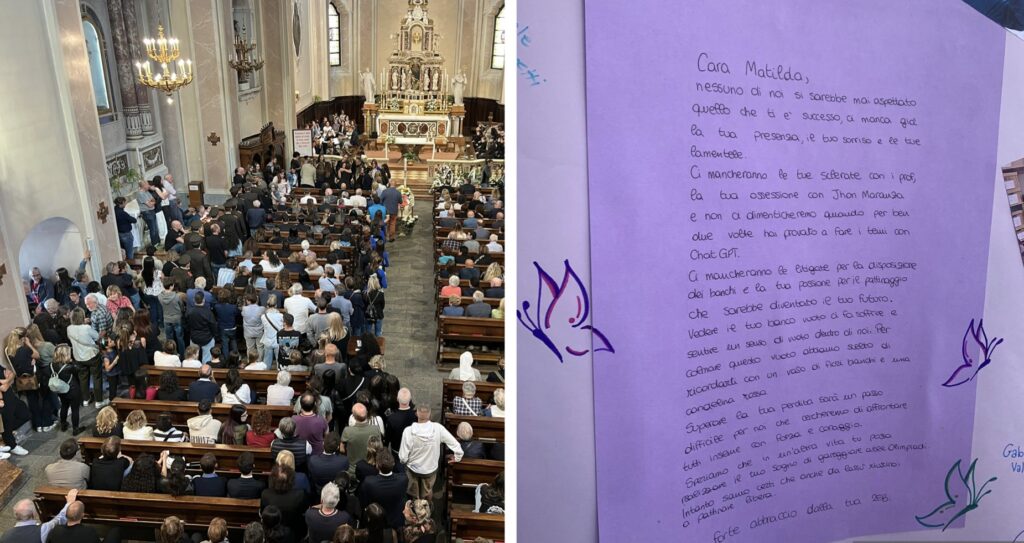 Cara Matilda,
nessuno di noi si sarebbe mai aspettato
quello che ti e' successo, ci manca già
la tua presenza, il tuo sorriso e le tue
lamentele.
Ci mancheranno le tue sclerate con i prof,
la tua ossessione con Jhon Maranza
e non ci dimenticheremo quando per ben
due volte hai provato a fare i temi con
Chat GPT.
Ci mancheranno le litigate per la disposizione
dei banchi e la tua passione per il pattinaggio
che sarebbe diventato il tuo futuro.
Vedere il tuo banco vuoto ci fa soffrire e
sentire un senso di vuoto dentro di noi. Per
colmare questo vuoto abbiamo scelto di
ricordarti con un vaso di fiori bianchi e una
candelina rossa.
Superare la tua perdita sarà un passo
difficile per noi che cercheremo di affrontare
tutti insieme con forza e coraggio.
Speriamo che in un'altra vita tu possa
realizzare il tuo sogno di gareggiare alle Olimpiadi.
Intanto siamo certi che anche da lassù riuscirai
a pattinare libera.
Forte abbraccio dalla tua